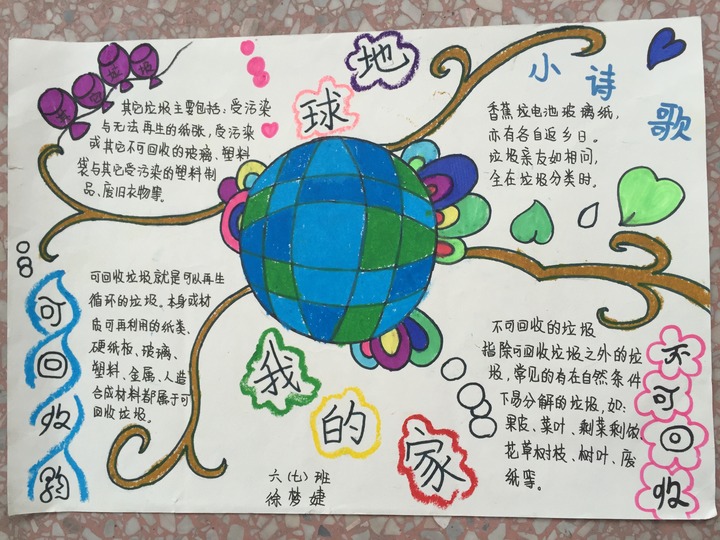 地
球
我
的
家
其它垃圾
其它垃圾主要包括：受污染
与无法再生的纸张，受污染
或其它不可回收的玻璃、塑料
袋与其它受污染的塑料制
品、废旧衣物等。
小诗歌
香蕉垃电池玻璃纸，
亦有各自返乡日。
垃圾亲友如相问，
全在垃圾分类时。
可
回
收
可回收垃圾就是可以再生
循环的垃圾。本身或材
质可再利用的纸类、
硬纸板、玻璃、
塑料、金属、人造
合成材料都属于可
回收垃圾。
不可回收的垃圾
指除可回收垃圾之外的垃
圾，常见的有在自然条件
下易分解的垃圾，如：
果皮、菜叶、剩菜剩饭
花草树枝、树叶、废
纸等。
不
可
回
收
六（七）班
徐梦婕